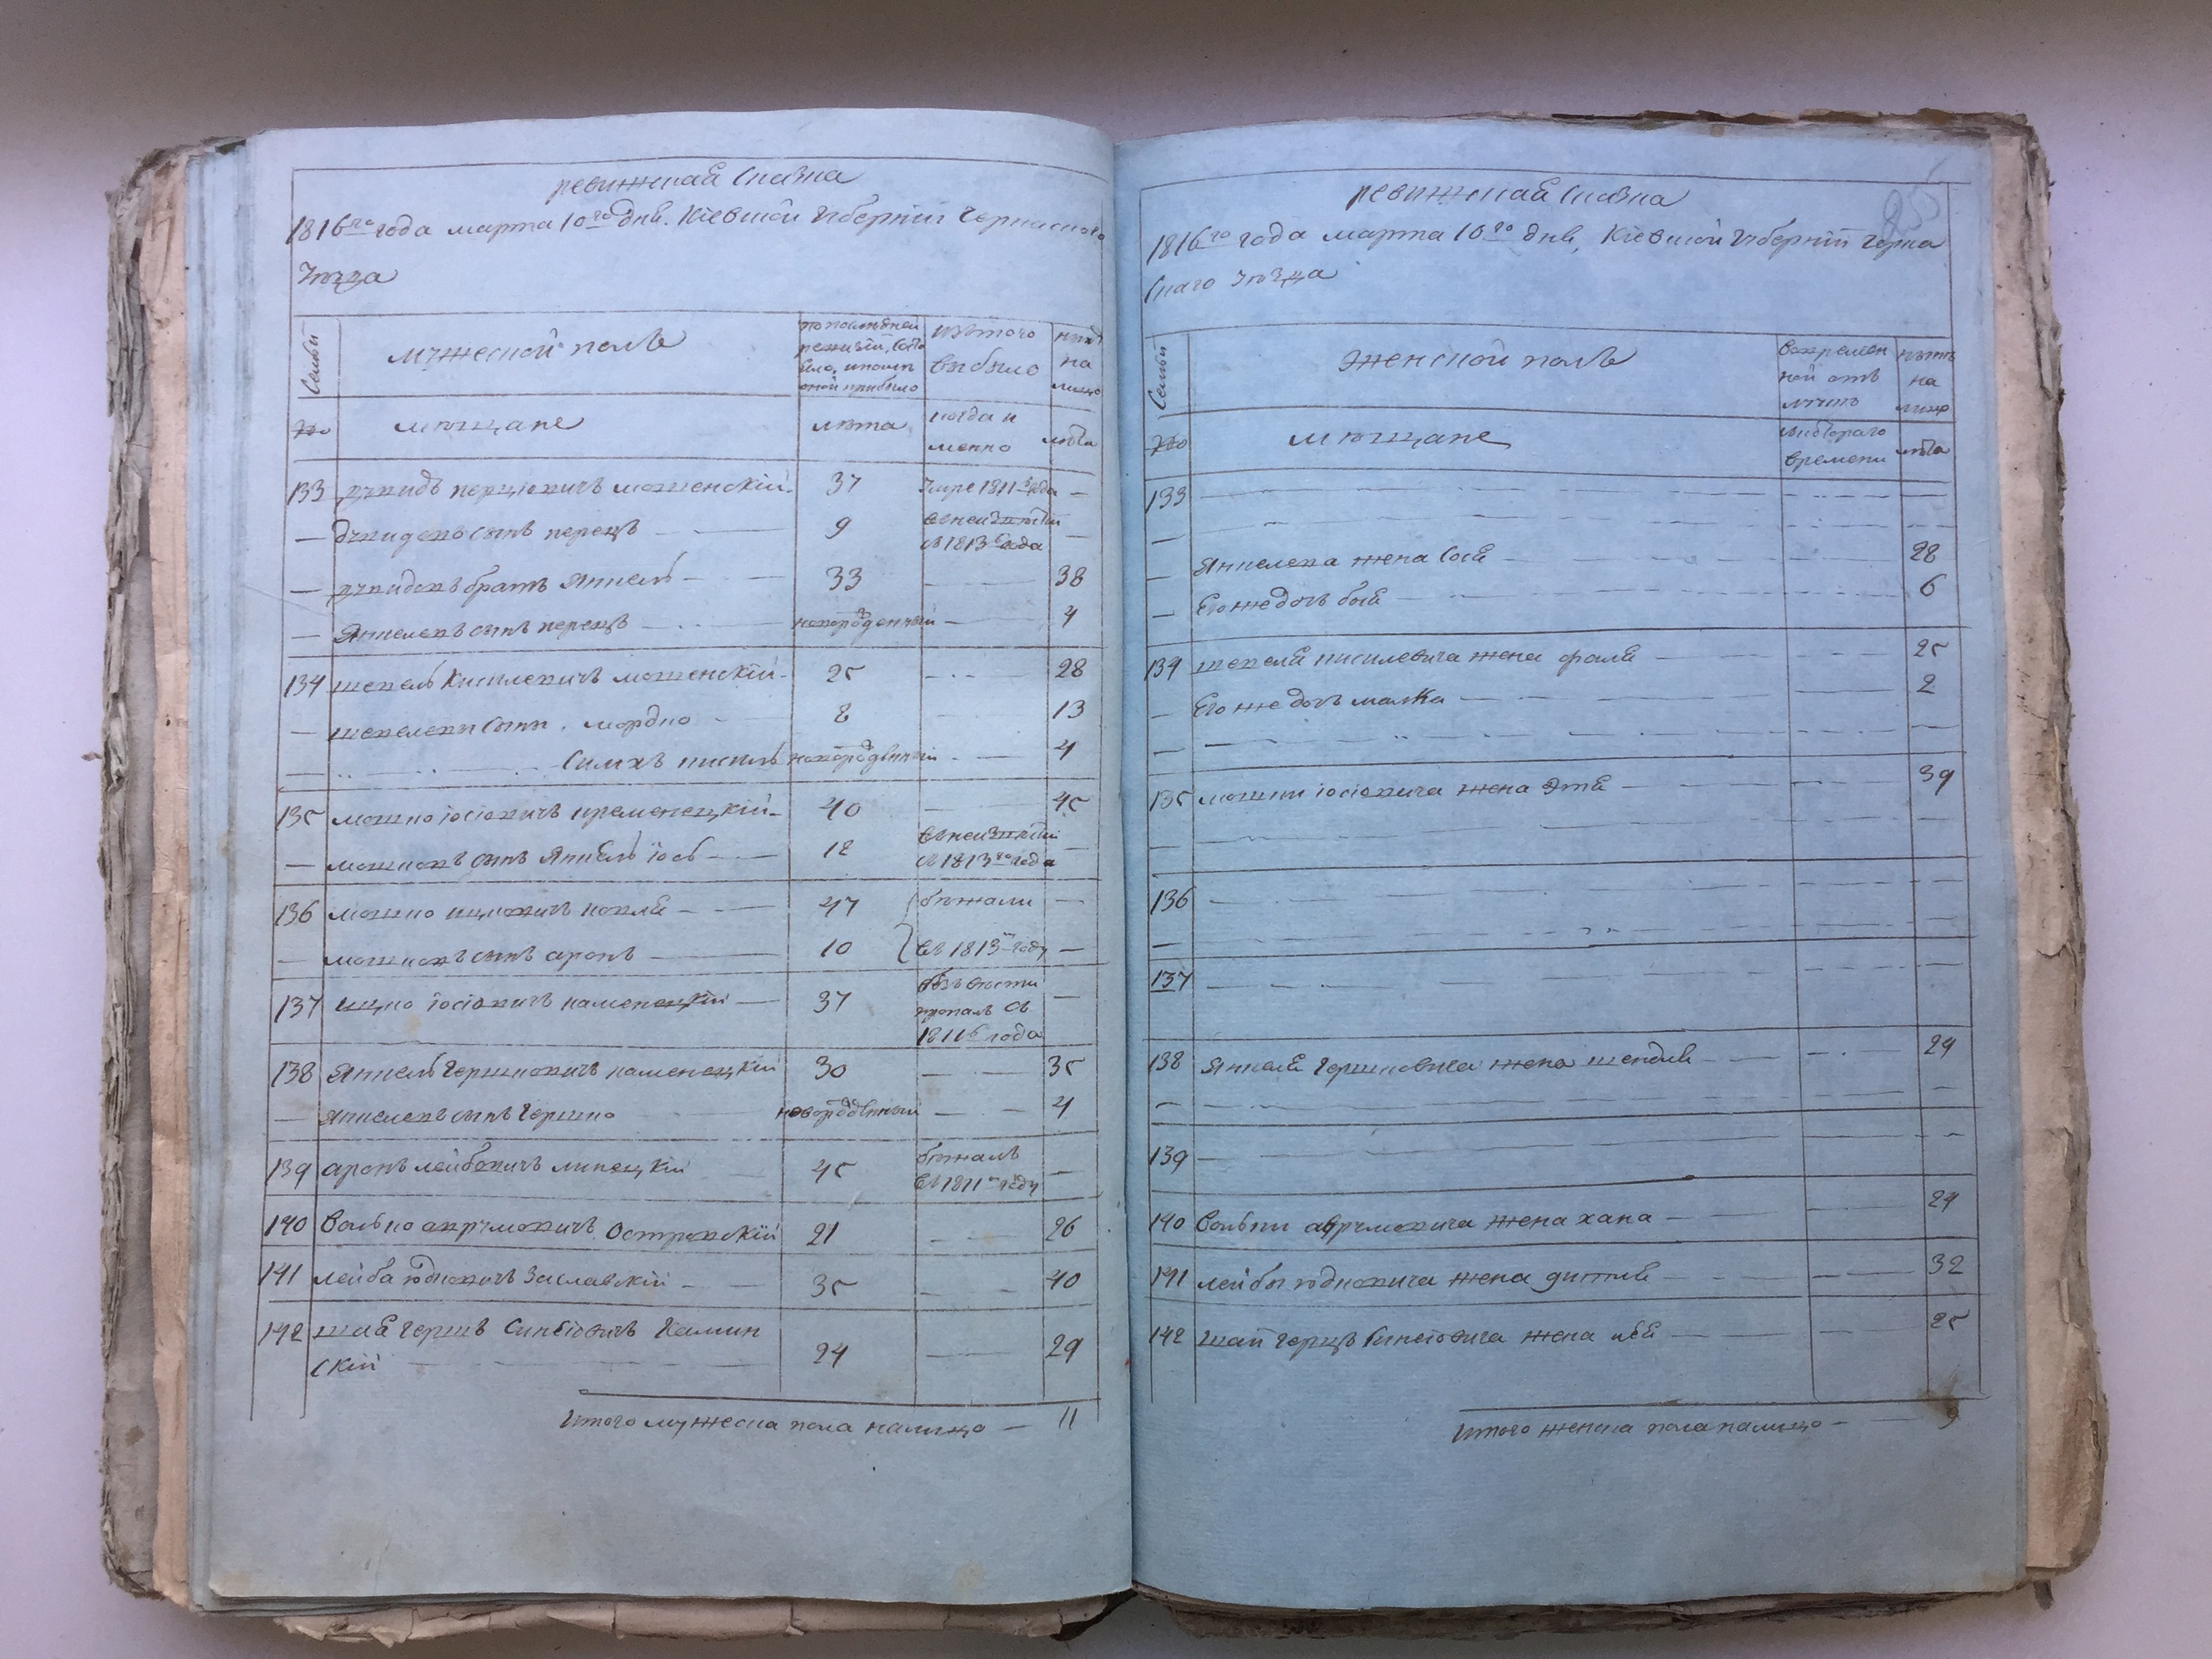 ревижская сказка
1816го года марта 10го днѣ. Кіевской Губерніи Черкаского
уѣзда
Семьи
мужеской полъ
по последней
ревизіи, состо
яло, и после
оной прибыло
изъ того
выбыло
нынѣ
на
лицо
No
мѣщане
лѣта
когда и
менно
лѣта
133 дувидъ перцовичъ мошенскій 37 умре 1811 года —
— дувидовъ сынъ перецъ — 9 въ неизвѣстіи
съ 1813 года —
— дувидовъ братъ Янкель — 33 — 38
— Янкелевъ сынъ перецъ — новорожденный — 4
134 шепсель Кисилевичъ мошенскій 25 — 28
— шепселевы сыны. мордко 8 — 13
— Симхъ кисиль новорожденный — 4
135 мошко іосіовичъ кременецкій 40 — 45
— мошковъ сынъ Янкель іось — 12 въ неизвѣстіи
съ 1813го года —
136 мошко ицковичъ 47 бѣжали —
— мошковъ сынъ аронъ — 10 въ 1813 году —
137 ицко іосіовичъ каменецкій — 37 безъ вѣсти
пропалъ съ
1811 года —
138 Янкель Гершковичъ каменецкій 30 — 35
— Янкелевъ сынъ Гершко новорожденный — 4
139 аронъ лейбовичъ липецкій 45 бѣжалъ
въ 1811 году —
140 Волько аврумовичъ Островскій 21 — 26
141 лейба юдковичъ Заславскій — 35 — 40
142 шая Гершъ Камин
скій — 24 — 29
Итого мужеска пола налицо — 11
ревижская сказка
1816го года марта 10го днѣ, Кіевской Губерніи Черка
скаго уѣзда
Семьи
Женской полъ
во времен
ной отъ
лучкѣ
нынѣ
на
лицо
No
мѣщане
съ котораго
времени
лѣта
133 —
—
— Янкелева жена Сося — 28
— Его же дочь бася — 6
134 шепселя кисилевича жена — 25
— Его же дочь малка — 2
—
135 мошки іосіовича жена Этя — 39
—
136 —
—
137 —
138 Янкеля Гершковича жена шендля — 24
—
139 —
140 Вольки аврумовича жена хана — 24
141 лейбы юдковича жена — 32
142 шаи Герша жена — 25
Итого женска пола налицо — 9